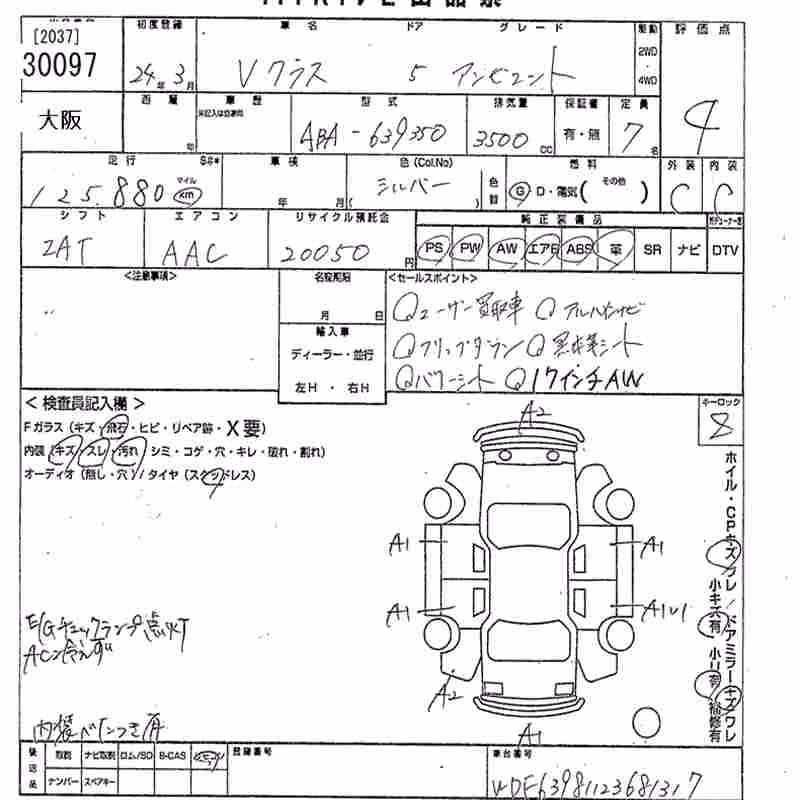 [2037] 初度登録 車名 ドア グレード 駆動 評価点
30097 24年 3月 Vクラス 5 アンビエント 2WD 4WD 4
大阪 車歴 型式 排気量 保証書 定員
年 未記入は自家用 ABA-639350 3500cc 有・無 7名
走行 車検 色(Col.No) 色替 燃料 その他 外装 内装
125,880 マイル km 年 月 シルバー G D・電気( ) C C
シフト エアコン リサイクル預託金 純正装備品
2AT AAC 20050円 PS PW AW エアB ABS 革 SR ナビ DTV
<注意事項> 名変期限 <セールスポイント>
月 日 Qユーザー買取車 Qアルパインナビ
輸入車
ディーラー・並行 Qフリップダウン Q黒本革シート
左H・右H Qパワーシート Q17インチAW
<検査員記入欄> キーロック
Fガラス(キズ・飛石・ヒビ・リペア跡・X要) 8
内装(キズ・スレ・汚れ・シミ・コゲ・穴・キレ・破れ・割れ)
オーディオ(無し・穴)/タイヤ(スタッドレス)
A2
A1 A1
A1 A1U1
A2
A1
ホイル・CPキズ ワレ/ドアミラーキズワレ
小キズ有 小凹有 補修有
E/Gチェックランプ点灯
AC冷えず
内装ベたつき有
後送品 取説 ナビ取説 ロム/SD B-CAS 登録番号 車台番号
ナンバー スペアキー WDF63981123681317